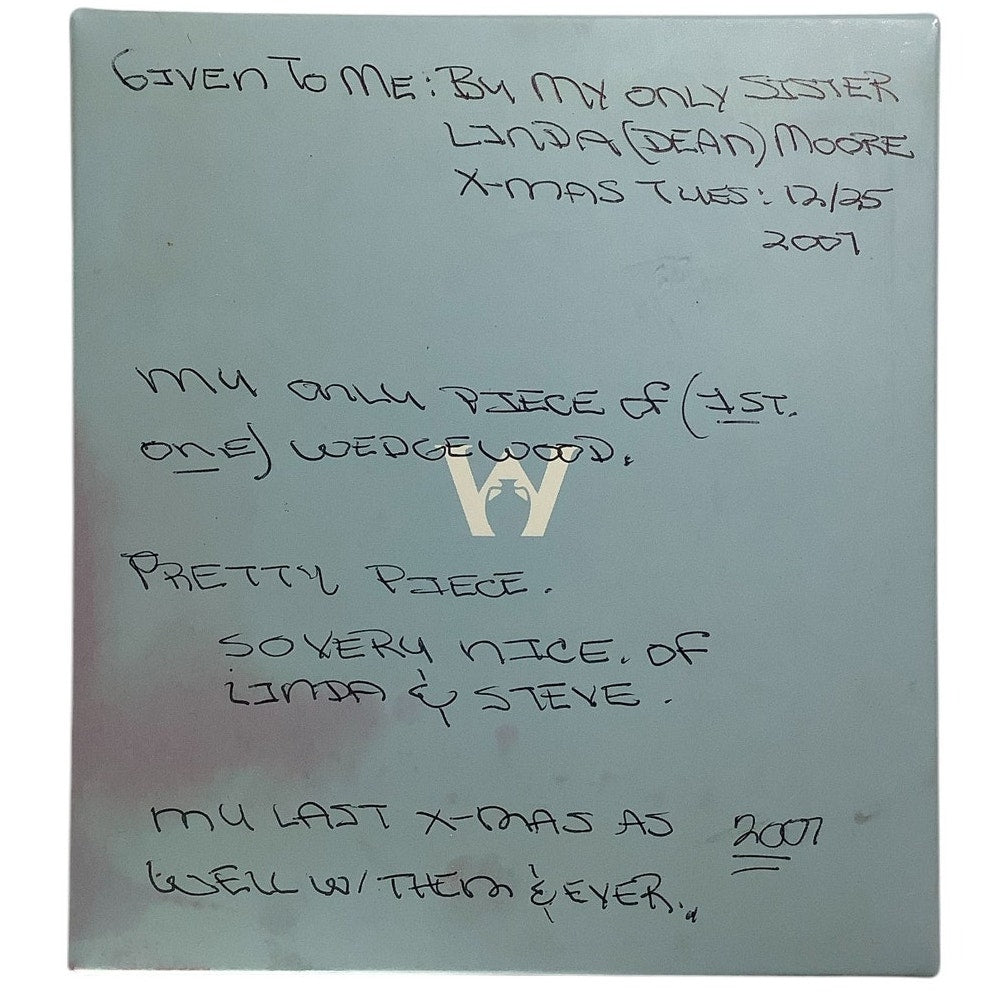 GIVEN TO ME: BY MY ONLY SISTER
LINDA (DEAN) MOORE
X-MAS TUES: 12/25
2007
MY ONLY PIECE OF (1ST.
ONE) WEDGEWOOD.
W
PRETTY PIECE.
SO VERY NICE. OF
LINDA & STEVE.
MY LAST X-MAS AS 2007
WELL W/ THEM & EVER.